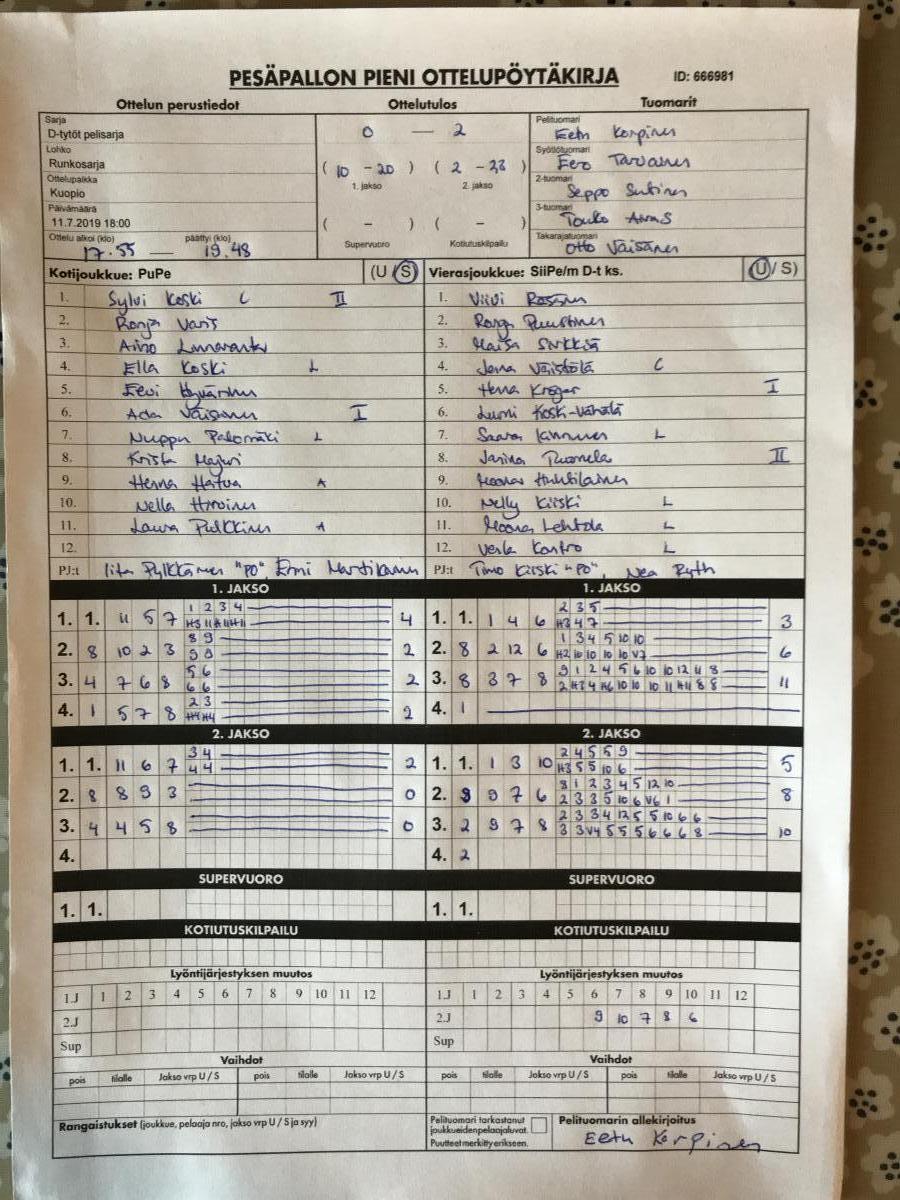 PESÄPALLON PIENI OTTELUPÖYTÄKIRJA ID: 666981
Ottelun perustiedot Ottelutulos Tuomarit
Sarja
D-tytöt pelisarja
0 — 2
Pelituomari
Eetu Korpinen
Lohko
Runkosarja
(10 - 20) (2 - 23)
1. jakso 2. jakso
Syöttötuomari
Eero Tarvainen
Ottelupaikka
Kuopio
2-tuomari
Seppo Sutinen
Päivämäärä
11.7.2019 18:00
( - ) ( - )
Supervuoro Kotiutuskilpailu
3-tuomari
Touko
Ottelu alkoi (klo) päättyi (klo)
17.55 — 19.48
Takarajatuomari
Otto Väisänen
Kotijoukkue: PuPe (U/S) Vierasjoukkue: SiiPe/m D-t ks. (U/S)
1. Sylvi Koski C II 1. Viivi
2. Ronja Varis 2. Puustinen
3. Aino 3. Maisa
4. Ella Koski L 4. Jenna Väistölä C
5. Eevi Hyvärinen 5. Henna Kröger I
6. Ada Väisänen I 6. Lumi Koski-Vähälä
7. Nuppu Palomäki L 7. Saara Kinnunen L
8. Krista Majuri 8. Janina Puumela II
9. Henna Hatva A 9. Moona Huhtilainen
10. Nella Hirvinen 10. Nelly Kiiski L
11. Laura Pulkkinen A 11. Moona Lehtola L
12. 12. Verla Kontro L
PJ:t Iita Pylkkänen "PO", Emmi Martikainen PJ:t Timo Kiiski "PO", Nea Ryth
1. JAKSO 1. JAKSO
1. 1. 11 5 7 1 2 3 4 4 1. 1. 1 4 6 2 3 5 3
H3 4 7
2. 8 10 2 3 8 9 2 2. 8 2 12 6 1 3 4 5 10 10 6
9 9 H2 10 10 10 10 V7
3. 4 7 6 8 5 6 2 3. 8 3 7 8 9 1 2 4 5 6 10 10 12 11 8 11
6 6 2 H3 4 H6 10 10 10 11 H11 8 8
4. 1 5 7 8 2 3 2 4. 1
H4 H4
2. JAKSO 2. JAKSO
1. 1. 11 6 7 3 4 2 1. 1. 1 3 10 2 4 5 5 9 5
4 4 H3 5 5 10 6
2. 8 8 9 3 0 2. 9 9 7 6 8 1 2 3 4 5 12 10 8
2 3 3 5 10 6 V6 1
3. 4 4 5 8 0 3. 2 9 7 8 2 3 3 4 12 5 5 10 6 6 10
3 3 V4 5 5 5 6 6 6 8
4. 4. 2
SUPERVUORO SUPERVUORO
1. 1. 1. 1.
KOTIUTUSKILPAILU KOTIUTUSKILPAILU
Lyöntijärjestyksen muutos Lyöntijärjestyksen muutos
1.J 1 2 3 4 5 6 7 8 9 10 11 12 1.J 1 2 3 4 5 6 7 8 9 10 11 12
2.J 2.J 9 10 7 8 6
Sup Sup
Vaihdot Vaihdot
pois tilalle Jakso vrp U / S pois tilalle Jakso vrp U / S pois tilalle Jakso vrp U / S pois tilalle Jakso vrp U / S
Rangaistukset (joukkue, pelaaja nro, jakso vrp U / S ja syy)
Pelituomari tarkastanut
joukkueiden pelaajaluvat.
Puutteet merkitty erikseen.
Pelituomarin allekirjoitus
Eetu Korpinen